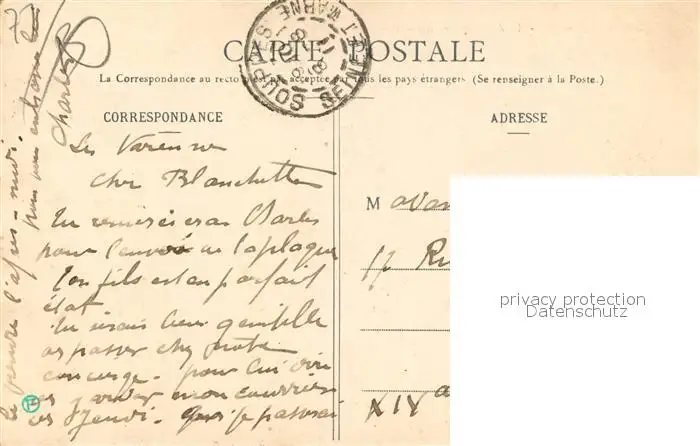 CARTE POSTALE
La Correspondance au recto n'est pas acceptée par tous les pays étrangers (Se renseigner à la Poste.)
CORRESPONDANCE
ADRESSE
SEINE ET MARNE
Les Varenne
Cher Blanchette
Tu remercieras Charles
pour l'envoi de la plaque
Ton fils est en parfait
état
Tu serais bien gentille
de passer chez notre
concierge - pour lui dire
de garder mon courrier
Jeudi - que je passerai
le prendre l'après-midi.
Charles
M
17 Ru
XIV
privacy protection
Datenschutz